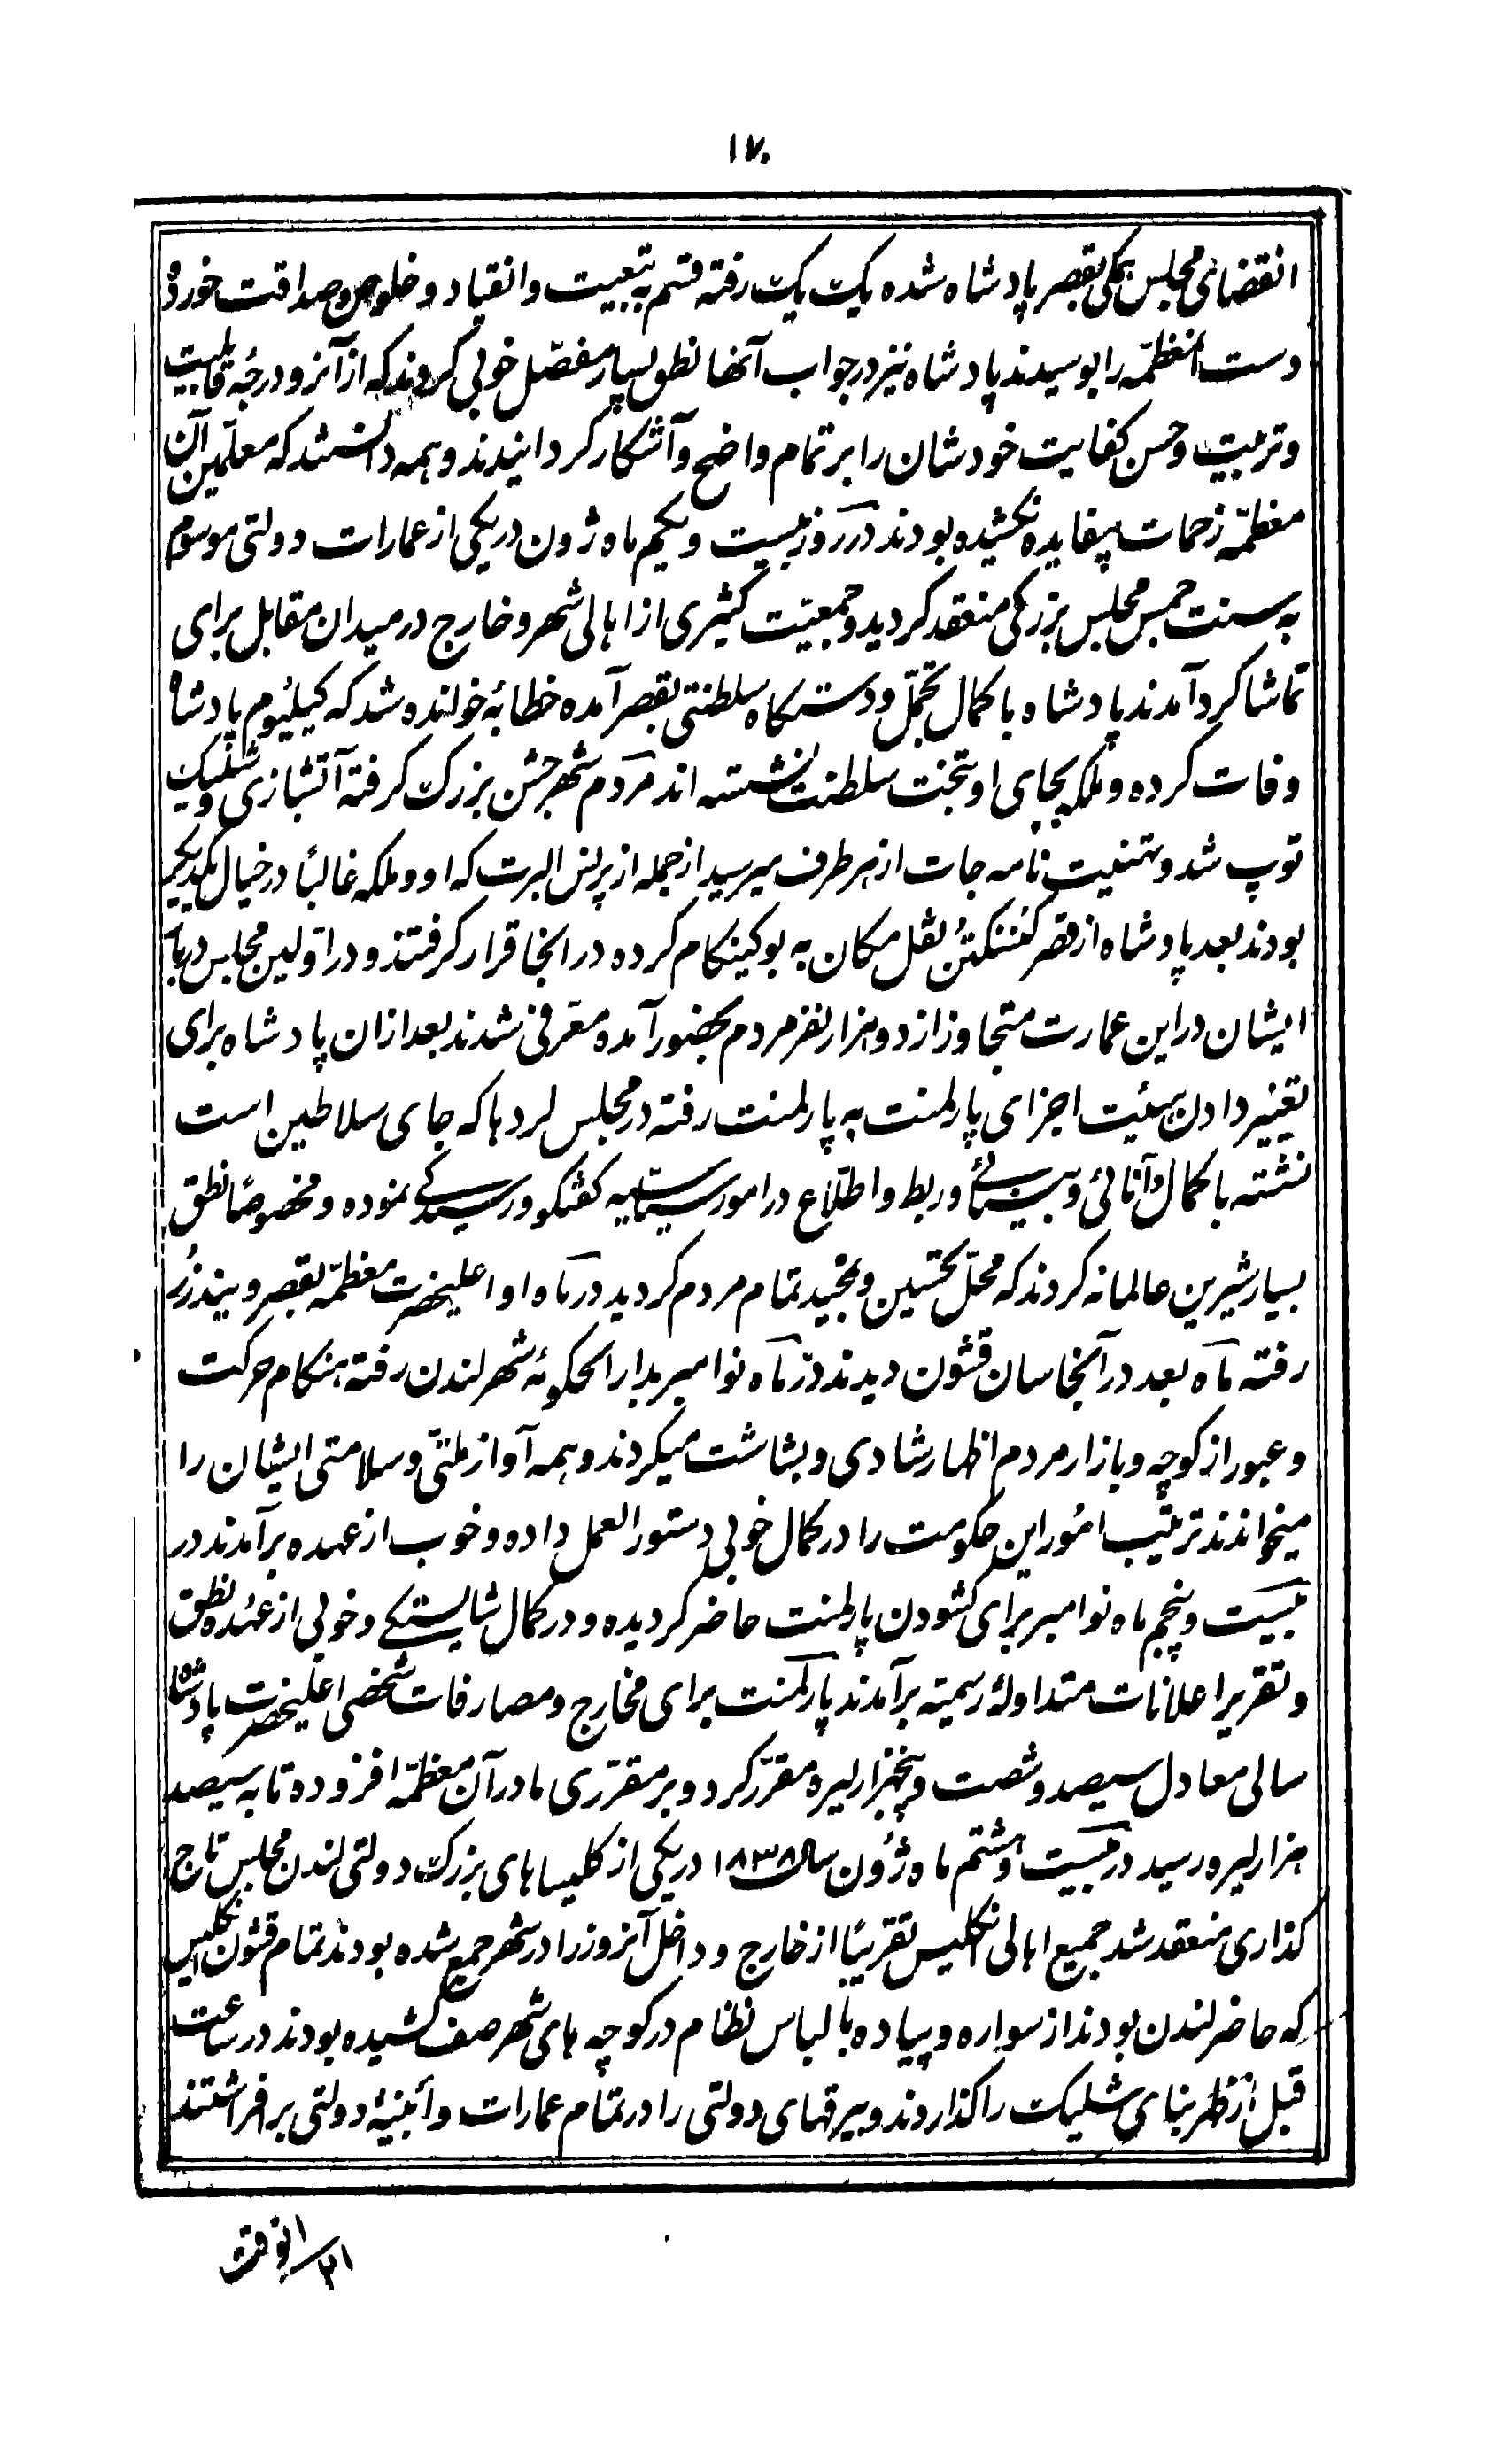 ۱۷۰
انقضای مجلس همگی بقصر پادشاه شده یک یک رفته قسم به تبعیت و انقیاد و خلوص و صداقت خورده
دست معظمّه را بوسیدند پادشاه نیز در جواب آنها نطق بسیار مفصّل خوبی کردند که از آنرو درجۀ قابلیت
و تربیت و حسن کفایت خودشان را بر تمام واضح و آشکار گردانیدند و همه دانستند که معلّمین آن
معظمّه زحمات بیفایده نکشیده بودند در روز بیست و یکم ماه ژون در یکی از عمارات دولتی موسوم
به سنت جمس مجلس بزرگی منعقد گردید و جمعیّت کثیری از اهالی شهر و خارج در میدان مقابل برای
تماشا گرد آمدند پادشاه با کمال تجمّل و دستگاه سلطنتی بقصر آمده خطابۀ خوانده شد که گیلیوم پادشاه
وفات کرده و ملکه بجای او بتخت سلطنت نشسته اند مردم شهر جشن بزرگ گرفته آتشبازی و شلیک
توپ شد و تهنیت نامه جات از هر طرف میرسید از جمله از پرنس البرت که او و ملکه غالبًا در خیال یکدیگر
بودند بعد پادشاه از قصر کنسنگتن نقل مکان به بوکینگام کرده در انجا قرار گرفتند و در اولین مجلس دربار
ایشان در این عمارت متجاوز از دو هزار نفر مردم بحضور آمده معرفی شدند بعد ازان پادشاه برای
تغییر دادن هیئت اجزای پارلمنت به پارلمنت رفته در مجلس لردها که جای سلاطین است
نشسته با کمال دانائی و بینائی و ربط و اطلاع در امور سیاسیه گفتگو و رسیدگی نموده و مخصوصًا نطق
بسیار شیرین عالمانه کردند که محلّ تحسین و تمجید تمام مردم گردید در ماه اوا علیحضرت معظمّه بقصر ویندزُر
رفته ماه بعد در آنجا سان قشون دیدند در ماه نوامبر بدار الحکومۀ شهر لندن رفته هنگام حرکت
و عبور از کوچه و بازار مردم اظهار شادی و بشاشت میکردند و همه آواز ملتّی و سلامتی ایشان را
میخواندند ترتیب امُور این حکومت را در کمال خوبی دستور العمل داده و خوب از عهده برآمدند در
بیست و پنجم ماه نوامبر برای گشودن پارلمنت حاضر گردیده و در کمال شایستگی و خوبی از عهُده نطق
و تقریر اعلانات متداولۀ رسمیّه برآمدند پارلمنت برای مخارج و مصارفات شخصی اعلیحضرت پادشاه
سالی معادل سیصد و شصت و پنجهزار لیره مقرّر کرد و بر مقرّری مادر آن معظمّه افزوده تا به سیصد
هزار لیره رسید در بیست و هشتم ماه ژُون سال ۱۸۳۸ در یکی از کلیساهای بزرگ دولتی لندن مجلس تاج
گذاری منعقد شد جمیع اهالی انگلیس تقریبًا از خارج و داخل آنروز را در شهر جمع شده بودند تمام قشون انگلیس
که حاضر لندن بودند از سواره و پیاده با لباس نظام در کوچه های شهر صف کشیده بودند در ساعت
قبل از ظهر بنای شلیک را گذاردند و بیرقهای دولتی را در تمام عمارات و ابنیۀ دولتی بر افراشتند
انوقت